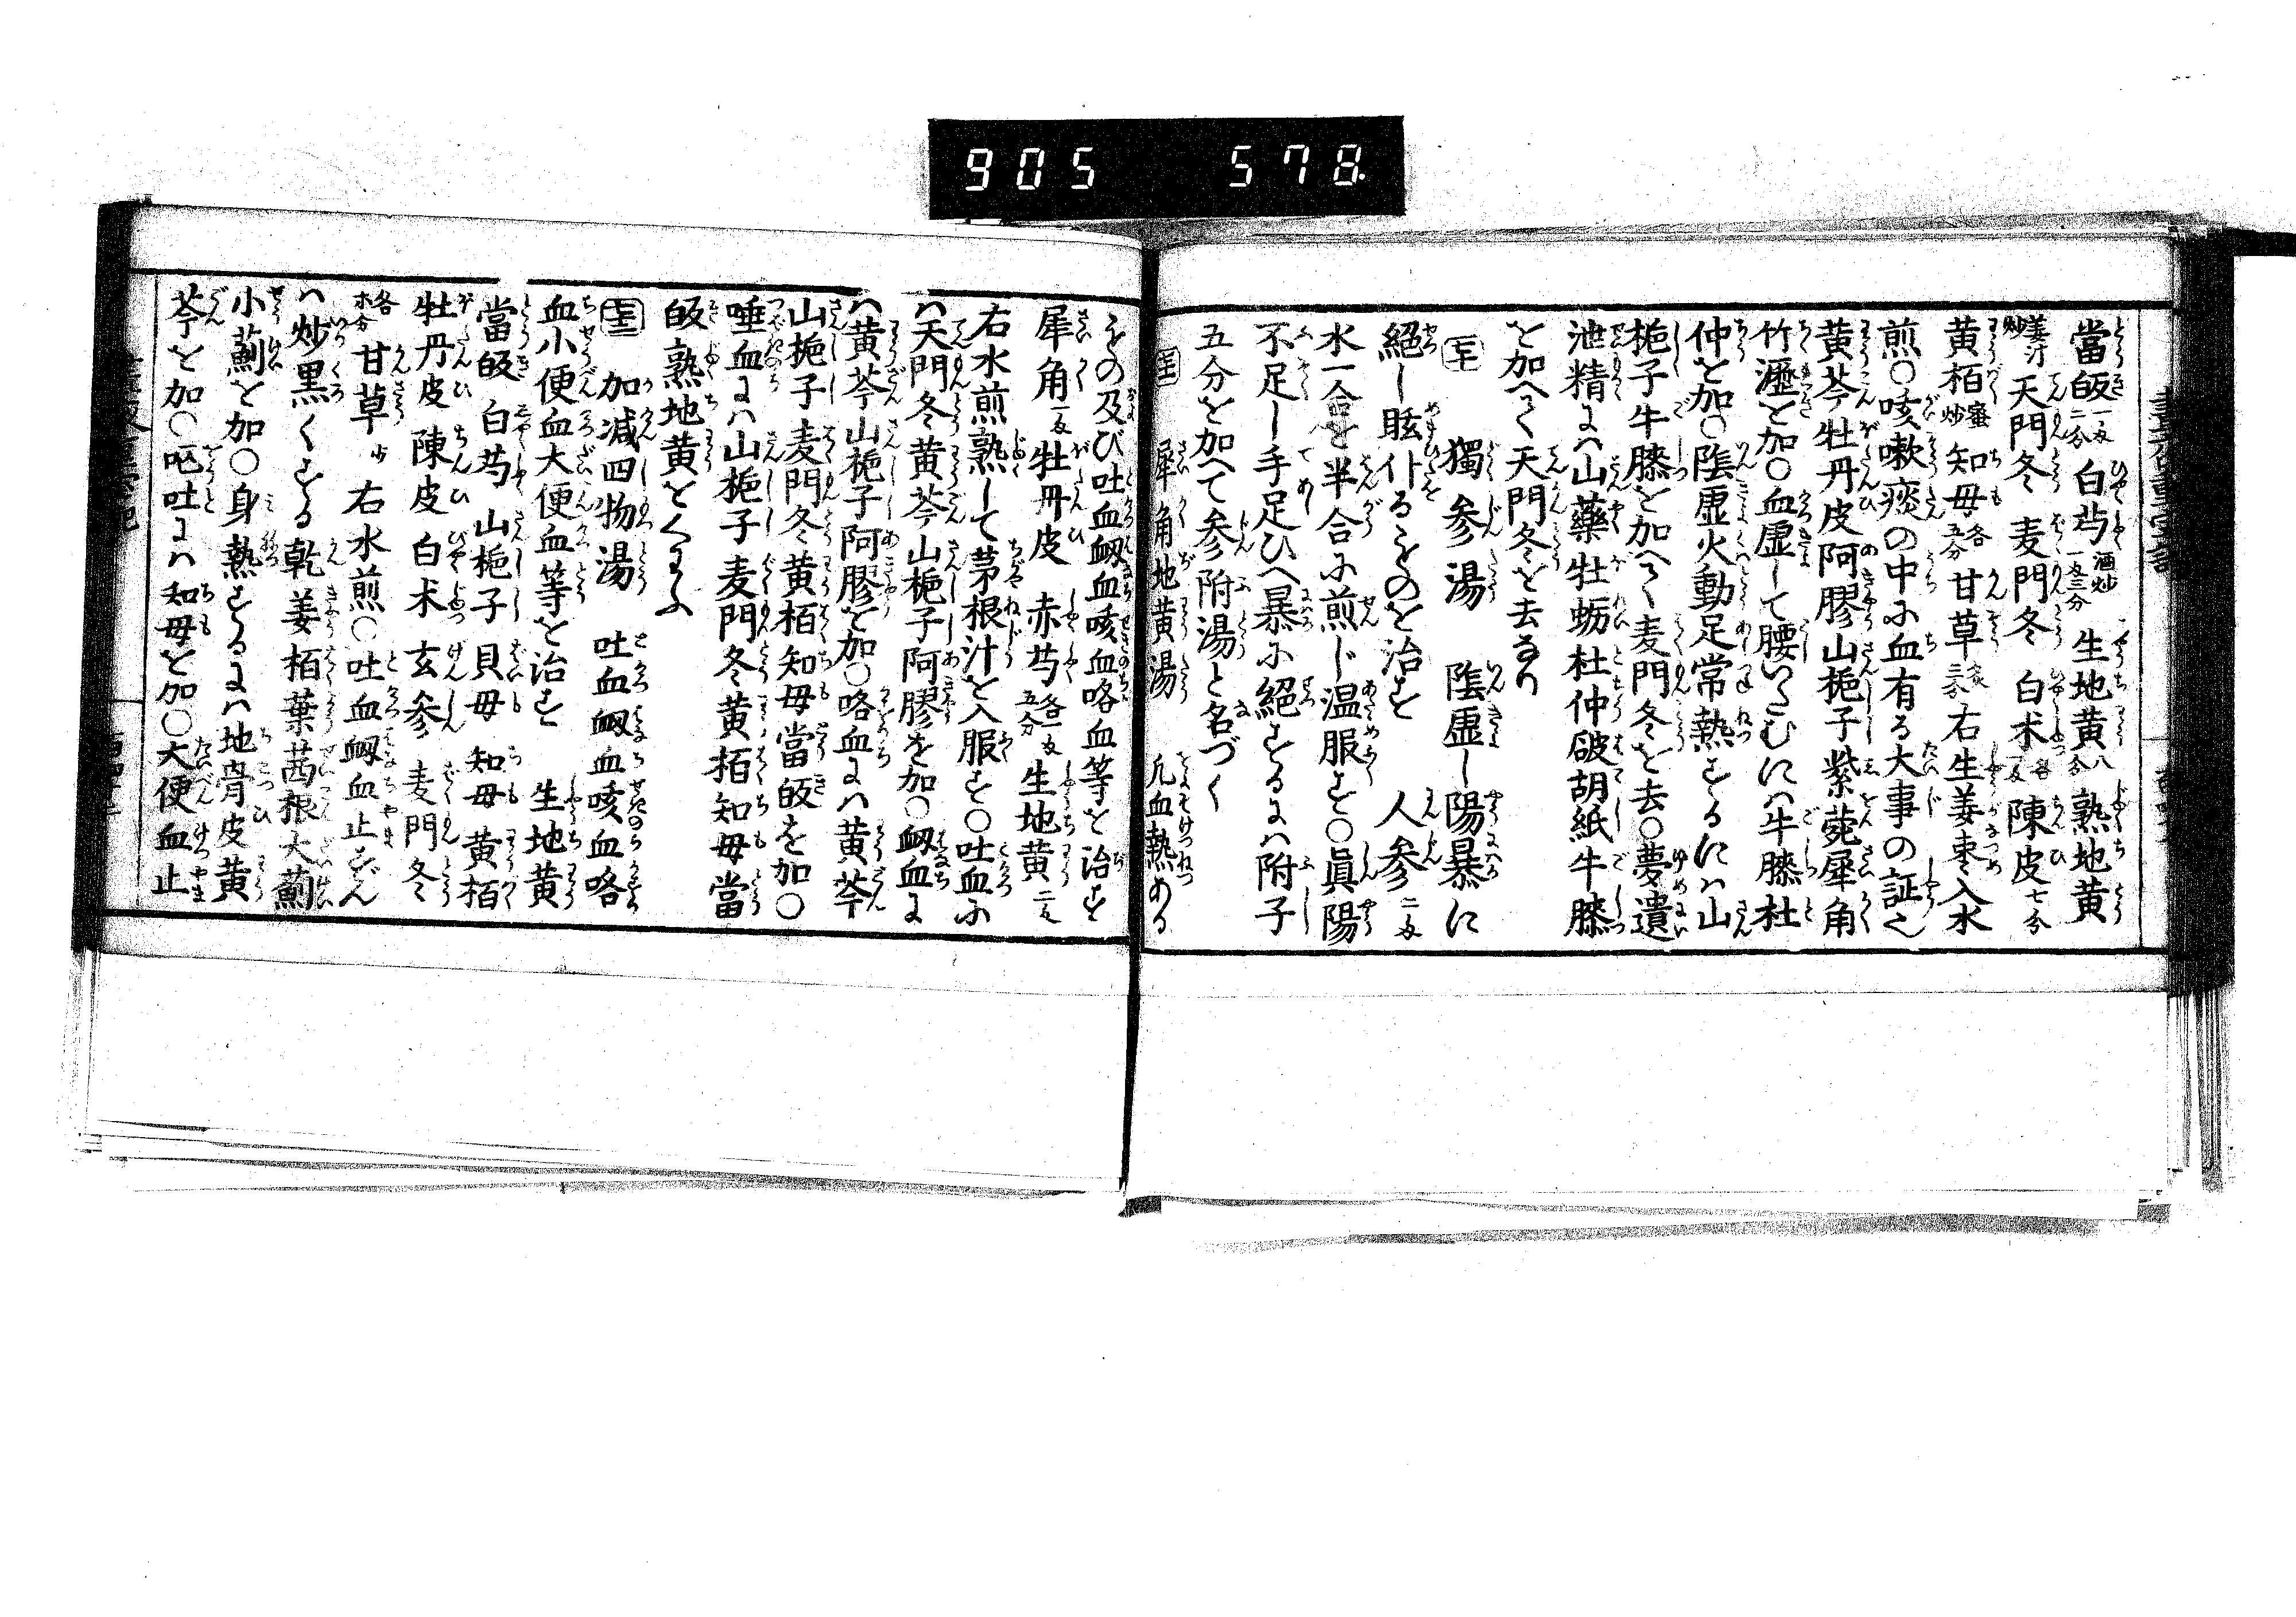 905 578
當皈一匁二分 白芍酒炒一匁三分 生地黄八分 熟地黄
姜汁炒 天門冬 麦門冬 白朮各一匁 陳皮七分
黄栢蜜炒 知母各五分 甘草炙三分 右生姜棗入水
煎〇咳嗽痰の中に血有る大事の証也
黄芩牡丹皮阿膠山梔子紫菀犀角
竹瀝を加〇血虚して腰いたむにハ牛膝杜
仲を加〇陰虚火動足常熱するにハ山
梔子牛膝を加へて麦門冬を去〇夢遺
泄精にハ山藥牡蛎杜仲破胡紙牛膝
を加へて天門冬を去るなり
獨参湯 陰虚し陽暴に
絕し眩仆るものを治す 人参二匁
水一合を半合に煎じ温服す〇眞陽
不足し手足ひへ暴に絕するにハ附子
五分を加へて参附湯と名づく
犀角地黄湯 凡血熱ある
もの及び吐血衂血咳血咯血等を治す
犀角一匁 牡丹皮 赤芍各一匁五分 生地黄二匁
右水煎熟して茅根汁を入服す〇吐血に
ハ天門冬黄芩山梔子阿膠を加〇衂血に
ハ黄芩山梔子阿膠を加〇咯血にハ黄芩
山梔子麦門冬黄栢知母當皈を加〇
唾血にハ山梔子麦門冬黄栢知母當
皈熟地黄をくはふ
加減四物湯 吐血衂血咳血咯
血小便血大便血等を治す 生地黄
當皈 白芍 山梔子 貝母 知母 黄栢
牡丹皮 陳皮 白朮 玄参 麦門冬
各等分 甘草少 右水煎〇吐血衂血止ずん
ハ炒黒くする乾姜栢葉茜根大薊
小薊を加〇身熱するにハ地骨皮黄
芩を加〇呕吐にハ知母を加〇大便血止